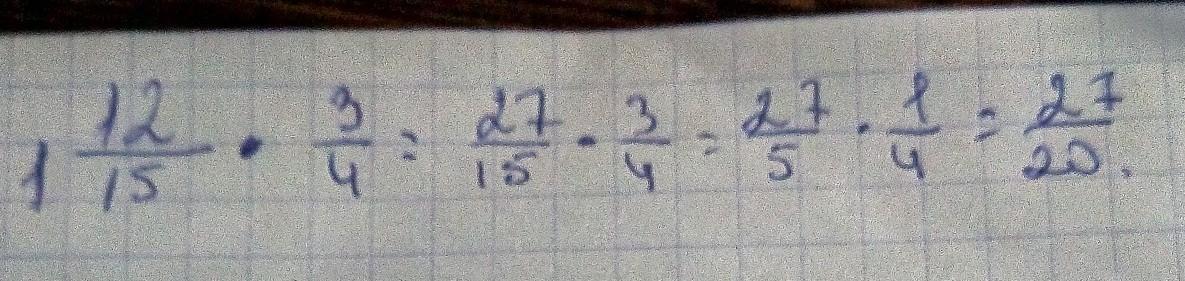 1 12/15 · 3/4 = 27/15 · 3/4 = 27/5 · 1/4 = 27/20.